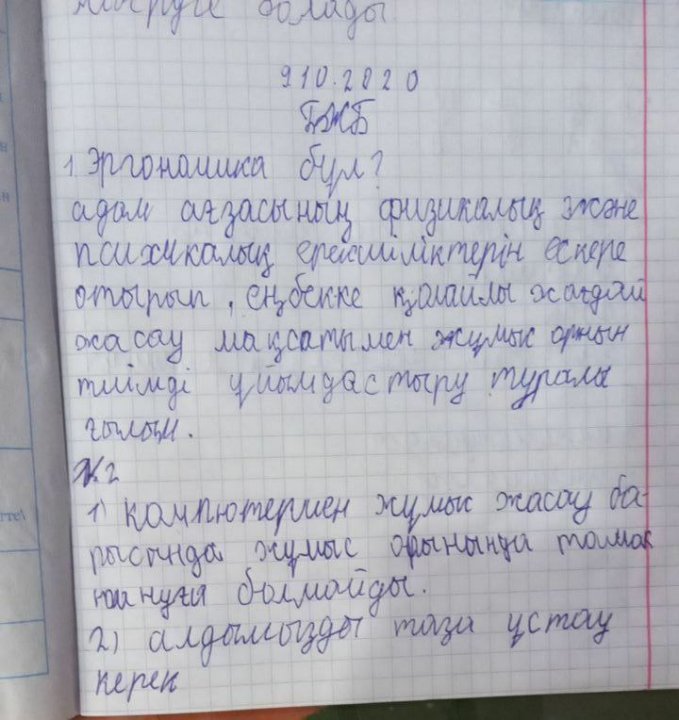 болады
9 10.2020
БЖБ
1. Эргономика бұл?
адам ағзасының физикалық және
психикалық ерекшіліктерін ескере
отырып, еңбекке қолайлы жағдай
жасау мақсатымен жұмыс орнын
тиімді ұйымдастыру туралы
ғылым.
№2
1) Компютермен жұмыс жасау ба-
рысында жұмыс орынында тамақ
болмайды.
2) алдымызды таза ұстау
керек